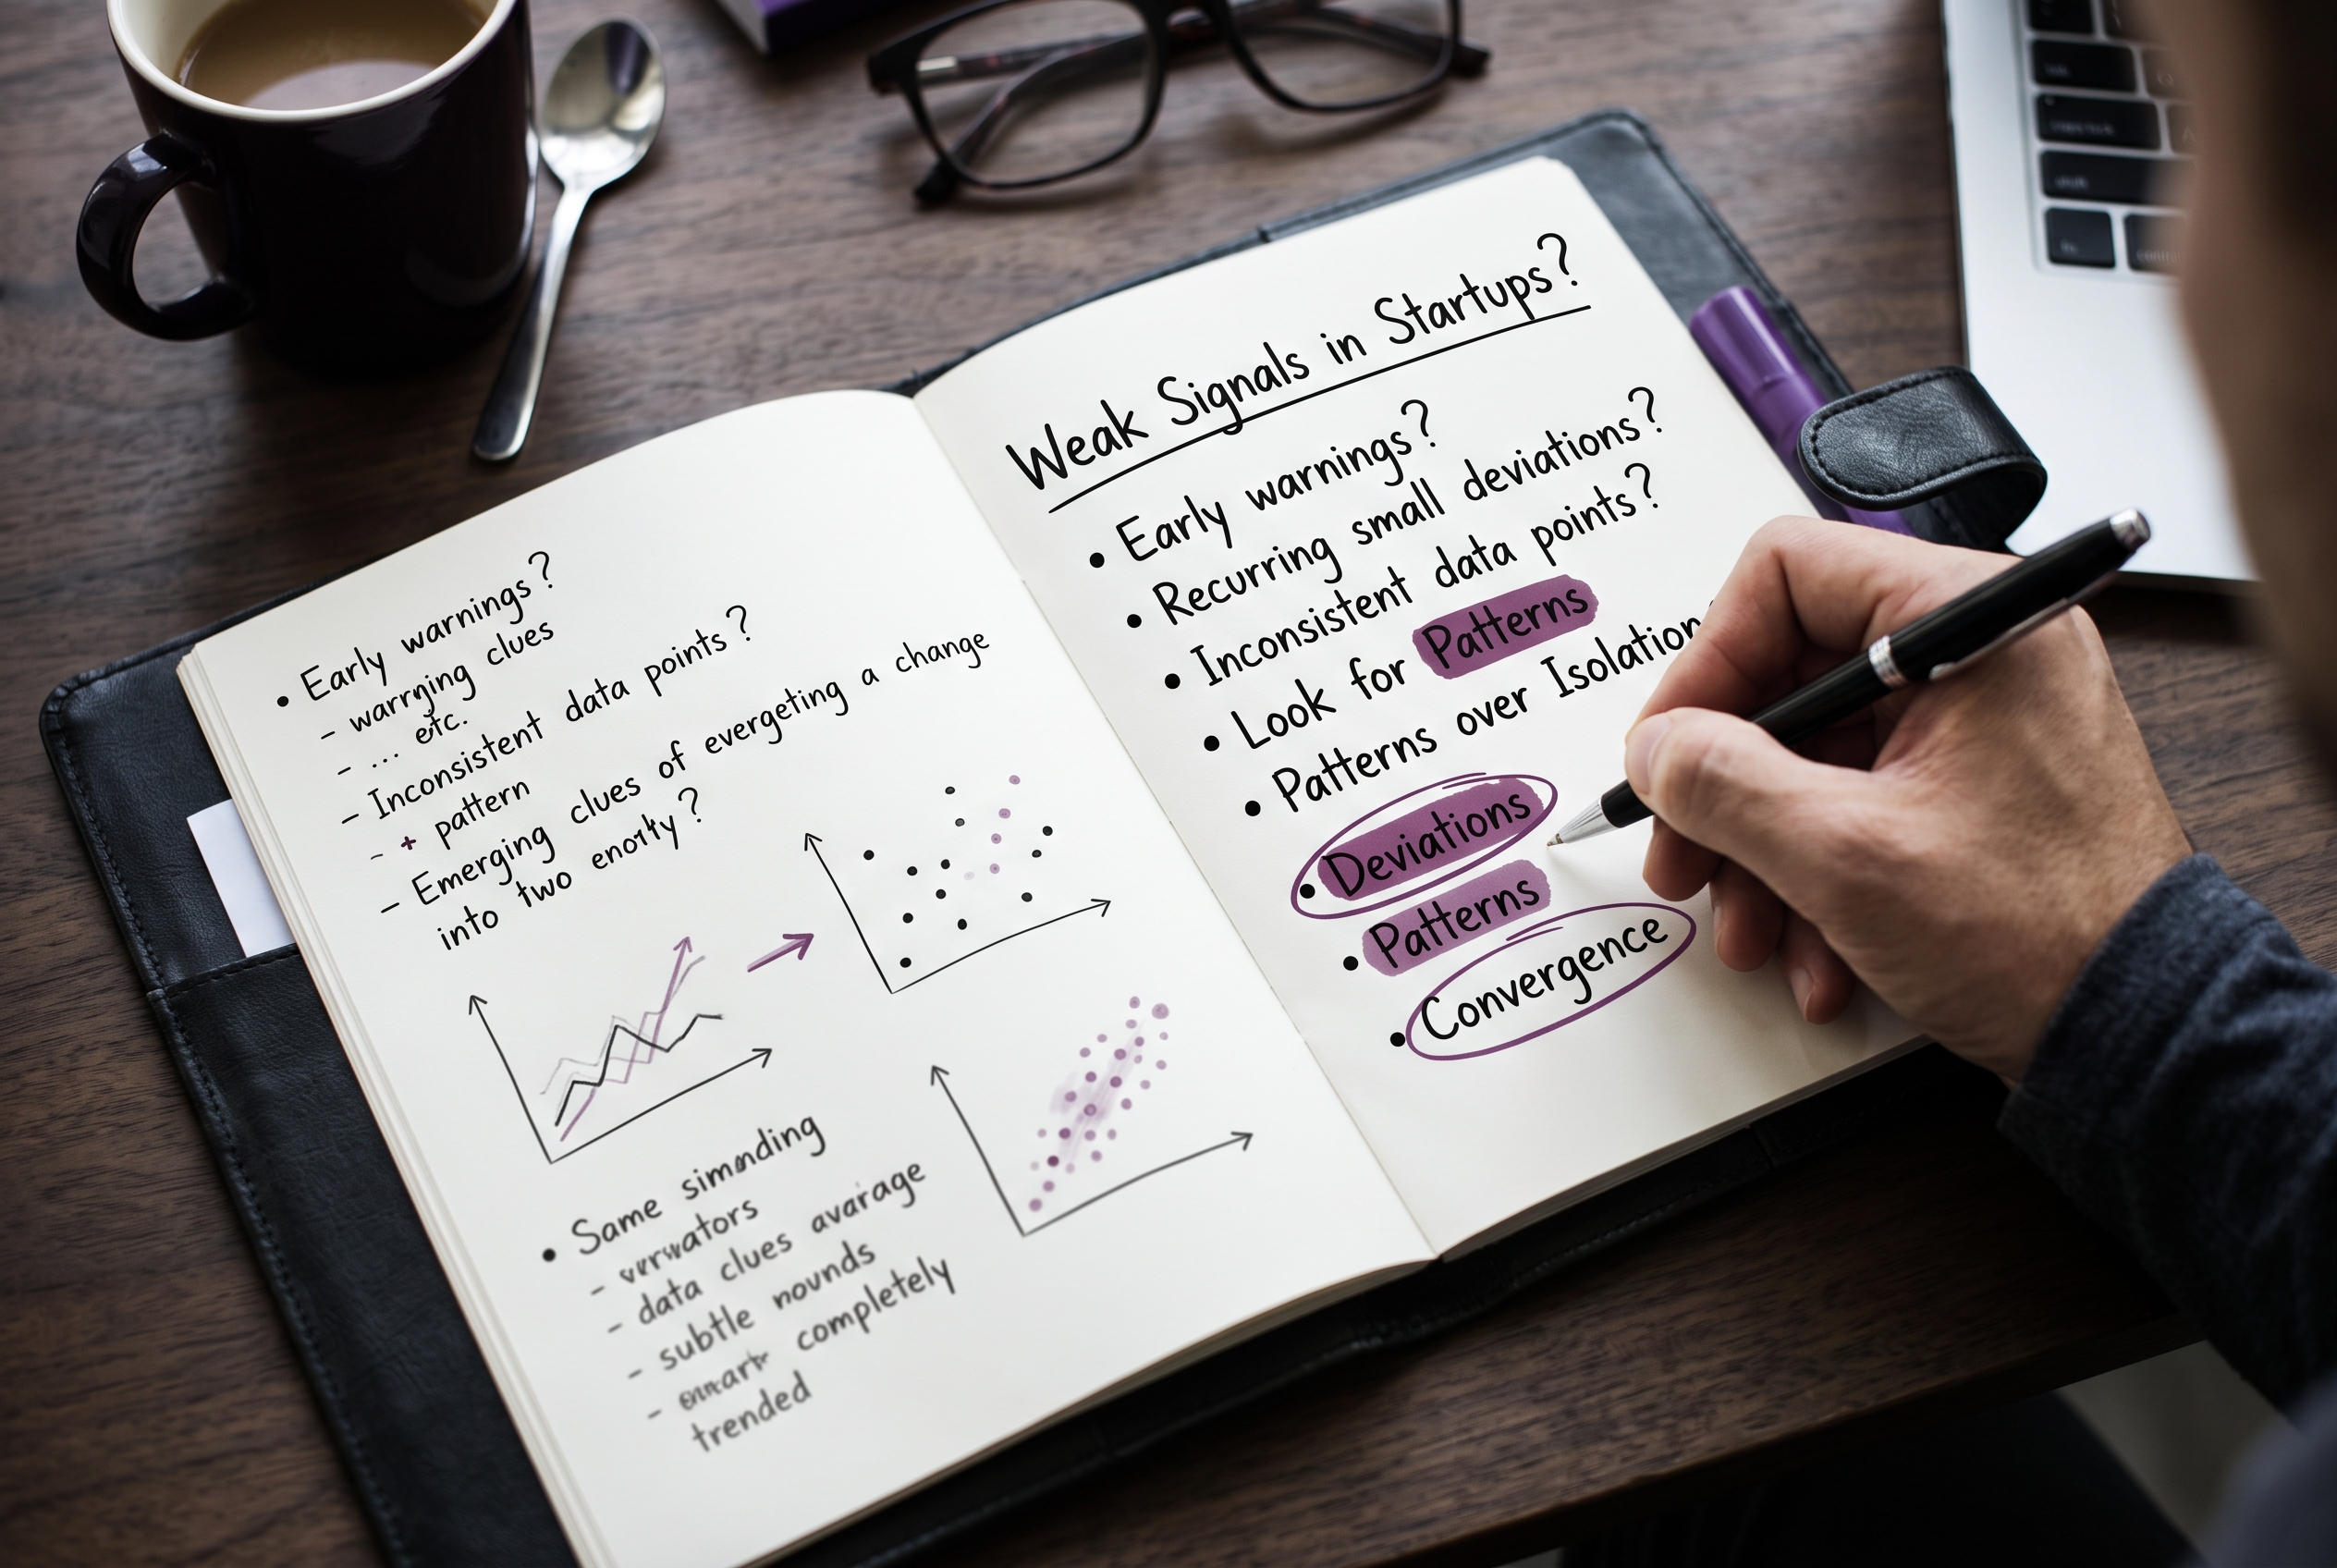 • Early warnings?
- warnjing clues
- ... etc.
- Inconsistent data points?
- + pattern
- Emerging clues of evergeting a change
into two
• Same
data clues avarage
- subtle nounds
- completely
trended
Weak Signals in Startups?
• Early warnings?
• Recurring small deviations?
• Inconsistent data points?
• Look for Patterns
• Patterns over Isolation
• Deviations
• Patterns
• Convergence
shift